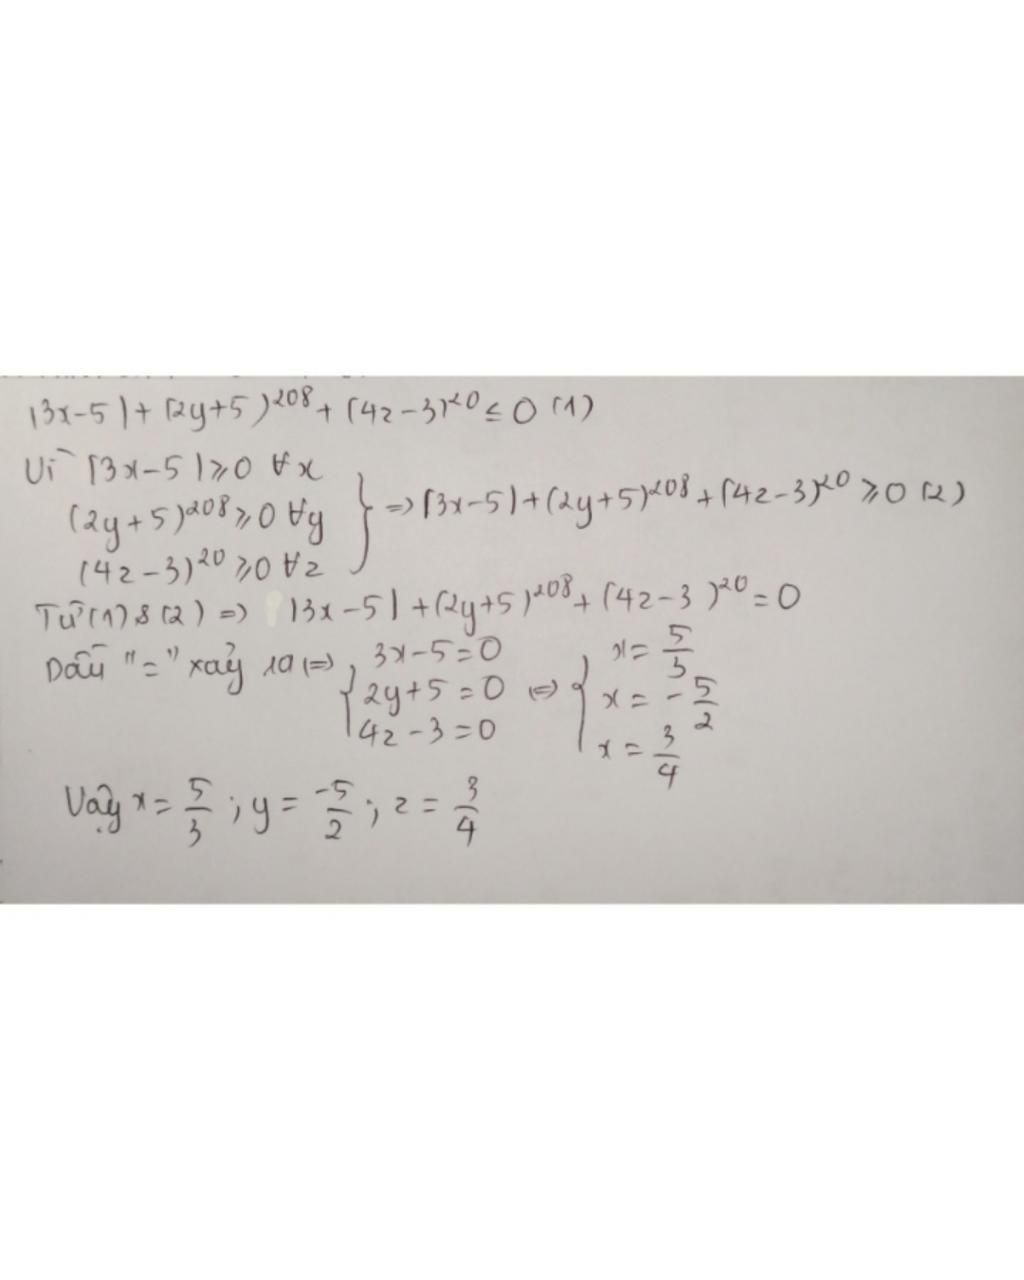 |3x-5|+(2y+5)²⁰⁸+(4z-3)²⁰≤0 (1)
Vì |3x-5|≥0 ∀x
(2y+5)²⁰⁸≥0 ∀y } => |3x-5|+(2y+5)²⁰⁸+(4z-3)²⁰≥0 (2)
(4z-3)²⁰≥0 ∀z
Từ (1) & (2) => |3x-5|+(2y+5)²⁰⁸+(4z-3)²⁰=0
Dấu "=" xảy ra <=> { 3x-5=0 ; 2y+5=0 ; 4z-3=0 <=> { x=5/3 ; x=-5/2 ; x=3/4
Vậy x=5/3 ; y=-5/2 ; z=3/4